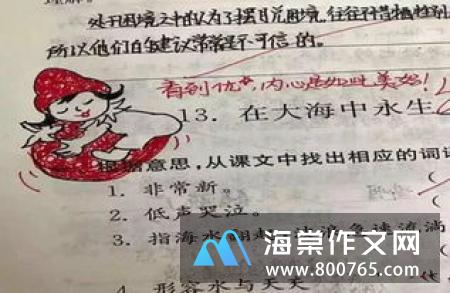 处于困境之中的人为了摆脱困境，往往不惜牺牲别
所以他们的建议常常是不可信的。
看到优，内心是如此美妙！
13. 在大海中永生
根据意思，从课文中找出相应的词语
1. 非常新。
2. 低声哭泣。
3. 指海水
急速流淌
4. 形容水与天
海棠作文网
www.800765.com